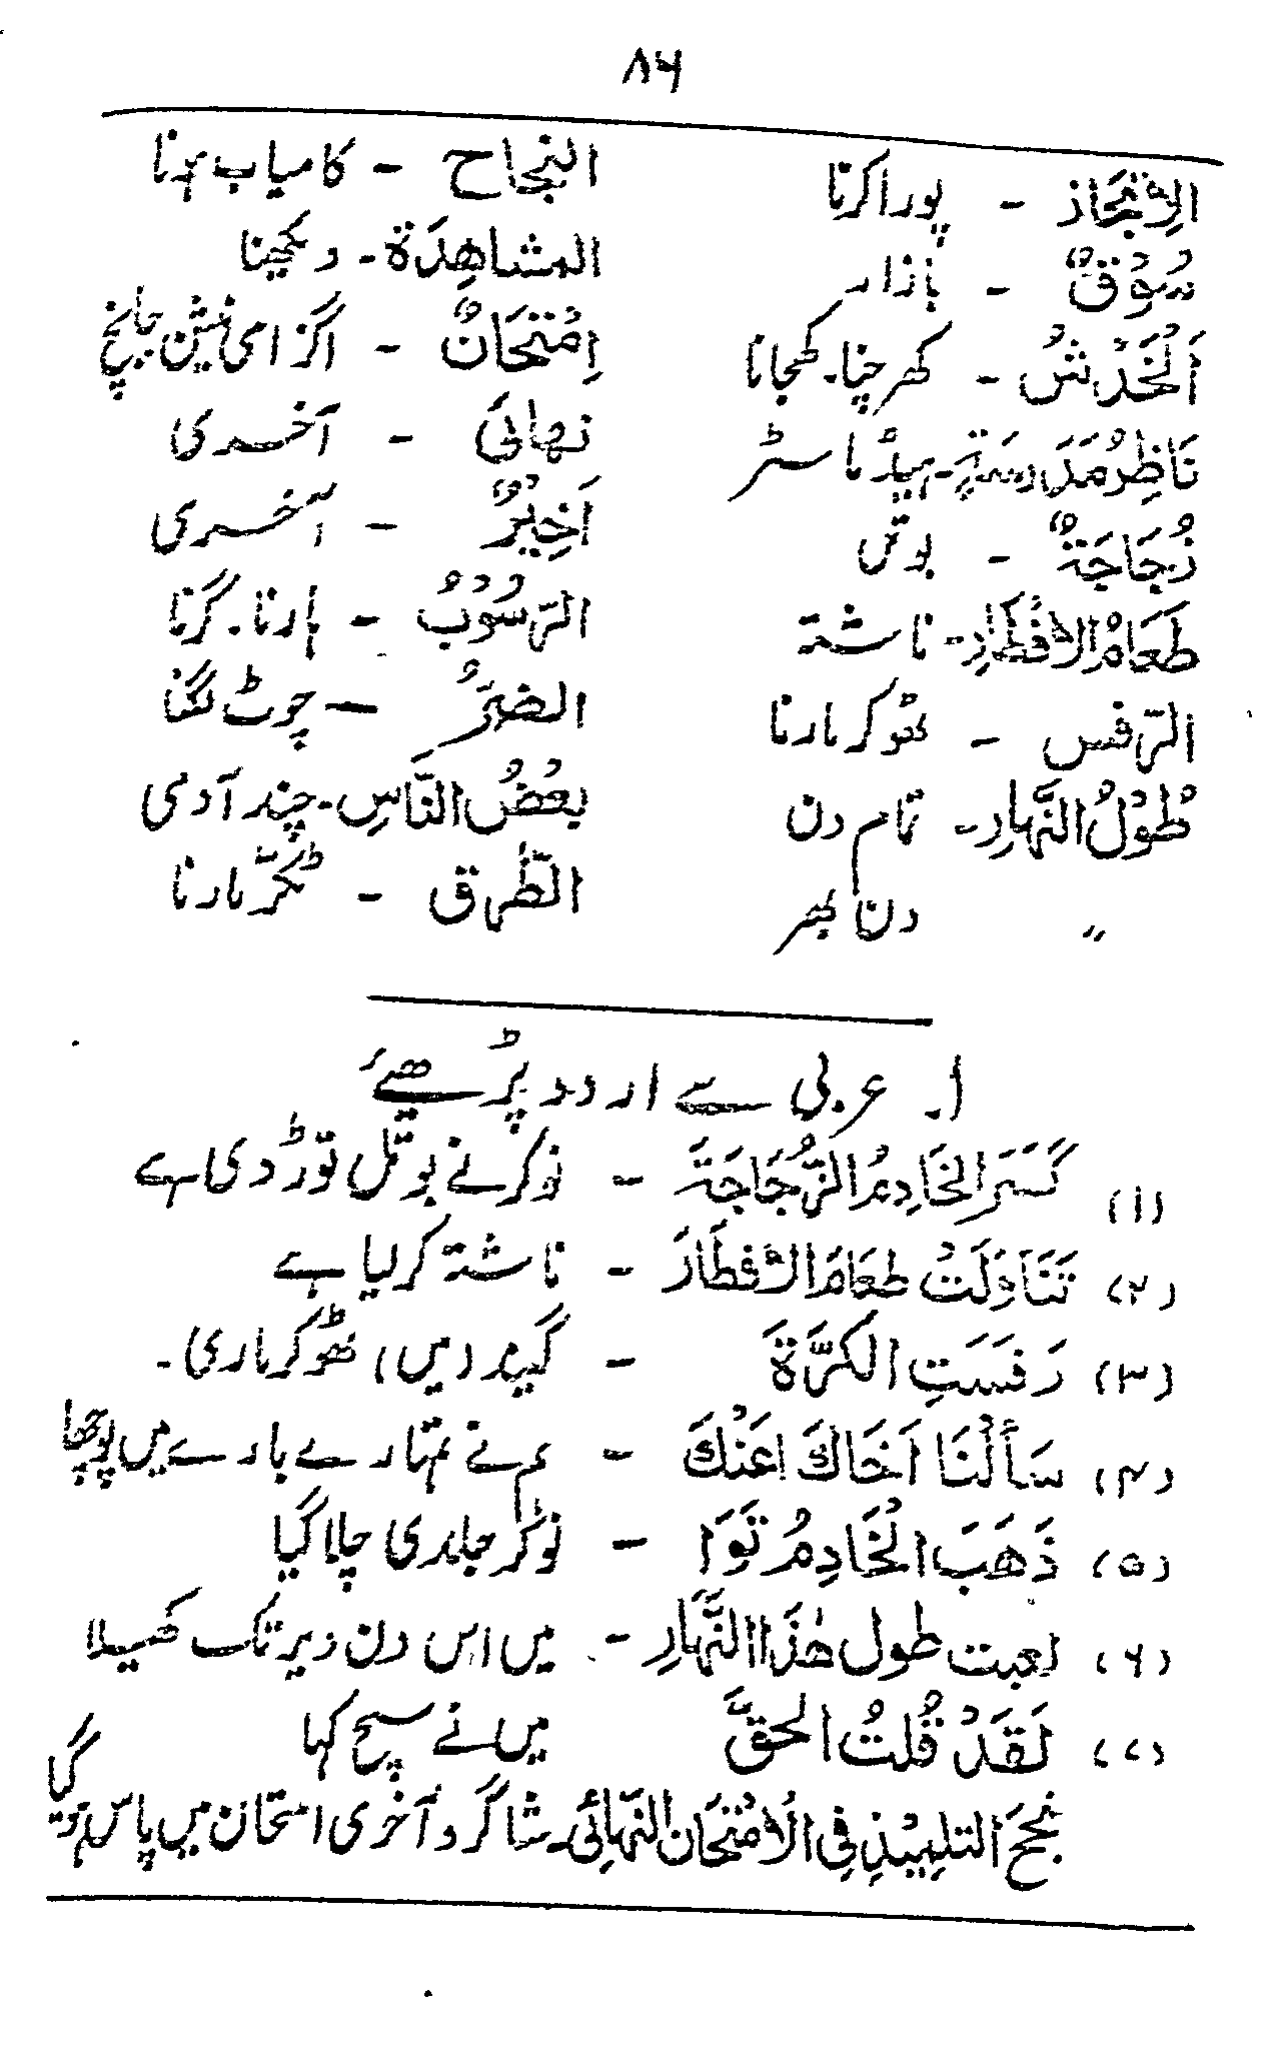 ۸۶
الِانْجَاذ - پورا کرنا
سُوْقٌ - بازار
اَلْخَدْشُ - کھرچنا۔ کھجانا
نَاظِرُ مَدَرسَةٍ - ہیڈ ماسٹر
زُجَاجَةٌ - بوتل
طَعَامُ الافْطَارِ - ناشتہ
الرّفس - ٹھوکر مارنا
طُوْلُ النَّهارِ - تمام دن
〃 دن بھر
النجاح - کامیاب ہونا
المشاهِدَة - دیکھنا
اِمْتِحَانٌ - اگزامی نیشن جانچ
نهائی - آخری
اَخِیْرٌ - آخری
الرّسُوْبُ - ہارنا۔ گرنا
الضرَرُ - چوٹ لگنا
بعْضُ النَّاسِ - چند آدمی
الطّرق - ٹکّر مارنا
۱۔ عربی سے اردو پڑھیۓ
(۱) کَسَرَ الخَادِمُ الزُّجَاجَةَ - نوکر نے بوتل توڑ دی ہے
(۲) تَنَاوَلَتْ طعَامَ الافطَارَ - ناشتہ کر لیا ہے
(۳) رَفَسَتِ الکرَّةَ - گیند (میں) ٹھوکر ماری۔
(۴) سَأَلْنَا اَخَاكَ عَنْكَ - ہم نے تمہارے بارے میں پوچھا
(۵) ذَهَبَ الْخَادِمُ تَوَا - نوکر جلدی چلا گیا
(۶) لعبت طول هٰذَا النَّهَارِ - میں اس دن دیر تک کھیلا
(۷) لَقَدْ قُلتُ الحقَّ میں نے سچ کہا
نجَحَ التلمِیْذِ فِی الْاُمْتِحَان النّهائِی - شاگرد آخری امتحان میں پاس ہو گیا